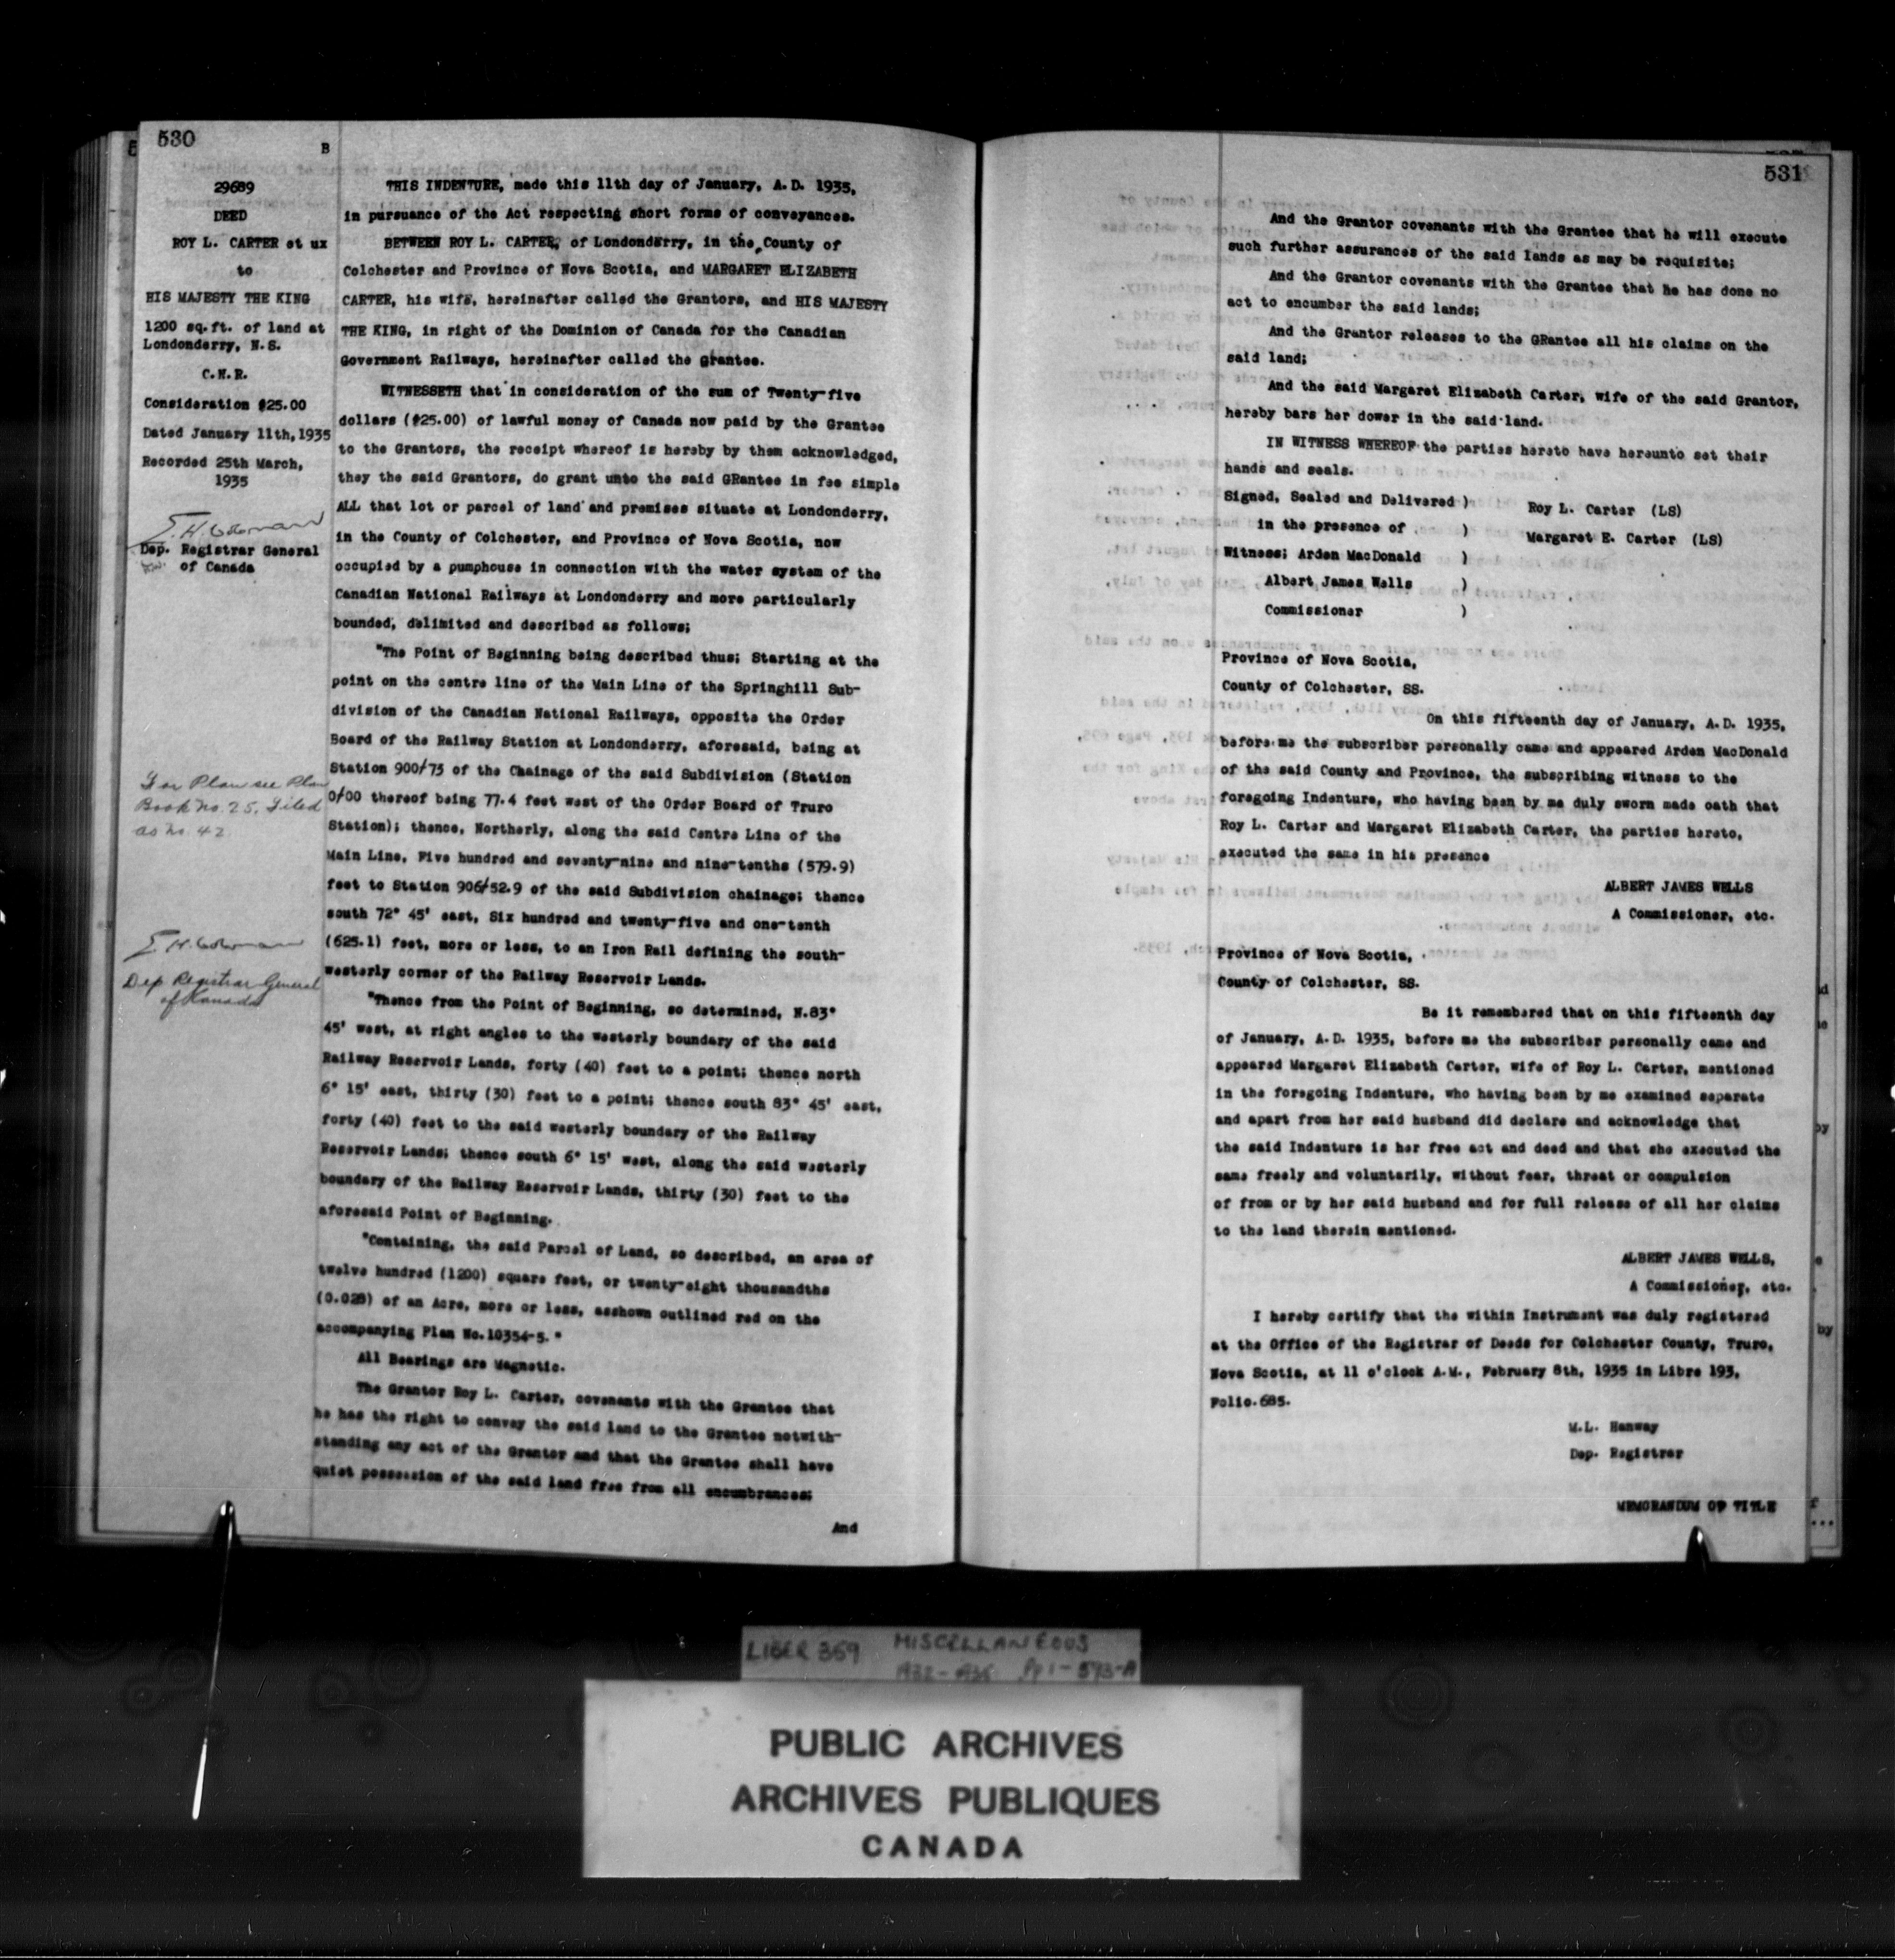 530
B
29689
DEED
ROY L. CARTER et ux
to
HIS MAJESTY THE KING
1200 sq.ft. of land at
Londonderry, N.S.
C.N.R.
Consideration $25.00
Dated January 11th, 1935
Recorded 25th March,
1935
Dep. Registrar General
of Canada
For Plan see Plan
Book No. 25, Filed
as No. 42
Dep Registrar General
of Canada
THIS INDENTURE, made this 11th day of January, A.D. 1935,
in pursuance of the Act respecting short forms of conveyances.
BETWEEN ROY L. CARTER, of Londonderry, in the County of
Colchester and Province of Nova Scotia, and MARGARET ELIZABETH
CARTER, his wife, hereinafter called the Grantors, and HIS MAJESTY
THE KING, in right of the Dominion of Canada for the Canadian
Government Railways, hereinafter called the grantee.
WITNESSETH that in consideration of the sum of Twenty-five
dollars ($25.00) of lawful money of Canada now paid by the Grantee
to the Grantors, the receipt whereof is hereby by them acknowledged,
they the said Grantors, do grant unto the said GRantee in fee simple
ALL that lot or parcel of land and premises situate at Londonderry,
in the County of Colchester, and Province of Nova Scotia, now
occupied by a pumphouse in connection with the water system of the
Canadian National Railways at Londonderry and more particularly
bounded, delimited and described as follows;
"The Point of Beginning being described thus; Starting at the
point on the centre line of the Main Line of the Springhill Sub-
division of the Canadian National Railways, opposite the Order
Board of the Railway Station at Londonderry, aforesaid, being at
Station 900/73 of the Chainage of the said Subdivision (Station
0/00 thereof being 77.4 feet west of the Order Board of Truro
Station); thence, Northerly, along the said Centre Line of the
Main Line, Five hundred and seventy-nine and nine-tenths (579.9)
feet to Station 906/52.9 of the said Subdivision chainage; thence
south 72° 45' east, Six hundred and twenty-five and one-tenth
(625.1) feet, more or less, to an Iron Rail defining the south-
westerly corner of the Railway Reservoir Lands.
"Thence from the Point of Beginning, so determined, N.83°
45' west, at right angles to the westerly boundary of the said
Railway Reservoir Lands, forty (40) feet to a point; thence north
6° 15' east, thirty (30) feet to a point; thence south 83° 45' east,
forty (40) feet to the said westerly boundary of the Railway
Reservoir Lands; thence south 6° 15' west, along the said westerly
boundary of the Railway Reservoir Lands, thirty (30) feet to the
aforesaid Point of Beginning.
"Containing, the said Parcel of Land, so described, an area of
twelve hundred (1200) square feet, or twenty-eight thousandths
(0.028) of an Acre, more or less, asshown outlined red on the
accompanying Plan No.10354-5."
All Bearings are Magnetic.
The Grantor Roy L. Carter, covenants with the Grantee that
he has the right to convey the said land to the Grantee notwith-
standing any act of the Grantor and that the Grantee shall have
quiet possession of the said land free from all encumbrances;
And
531
And the Grantor covenants with the Grantee that he will execute
such further assurances of the said lands as may be requisite;
And the Grantor covenants with the Grantee that he has done no
act to encumber the said lands;
And the Grantor releases to the GRantee all his claims on the
said land;
And the said Margaret Elizabeth Carter, wife of the said Grantor,
hereby bars her dower in the said land.
IN WITNESS WHEREOF the parties hereto have hereunto set their
hands and seals.
Signed, Sealed and Delivered ) Roy L. Carter (LS)
in the presence of ) Margaret E. Carter (LS)
Witness; Arden MacDonald )
Albert James Wells )
Commissioner )
Province of Nova Scotia,
County of Colchester, SS.
On this fifteenth day of January, A.D. 1935,
before me the subscriber personally came and appeared Arden MacDonald
of the said County and Province, the subscribing witness to the
foregoing Indenture, who having been by me duly sworn made oath that
Roy L. Carter and Margaret Elizabeth Carter, the parties hereto,
executed the same in his presence
ALBERT JAMES WELLS
A Commissioner, etc.
Province of Nova Scotia,
County of Colchester, SS.
Be it remembered that on this fifteenth day
of January, A.D. 1935, before me the subscriber personally came and
appeared Margaret Elizabeth Carter, wife of Roy L. Carter, mentioned
in the foregoing Indenture, who having been by me examined separate
and apart from her said husband did declare and acknowledge that
the said Indenture is her free act and deed and that she executed the
same freely and voluntarily, without fear, threat or compulsion
of from or by her said husband and for full release of all her claims
to the land therein mentioned.
ALBERT JAMES WELLS,
A Commissioner, etc.
I hereby certify that the within Instrument was duly registered
at the Office of the Registrar of Deeds for Colchester County, Truro,
Nova Scotia, at 11 o'clock A.M., February 8th, 1935 in Libre 193,
Folio.685.
M.L. Hanway
Dep. Registrar
MEMORANDUM OF TITLE
LIBER 359 MISCELLANEOUS
Pp 1-593-A
PUBLIC ARCHIVES
ARCHIVES PUBLIQUES
CANADA